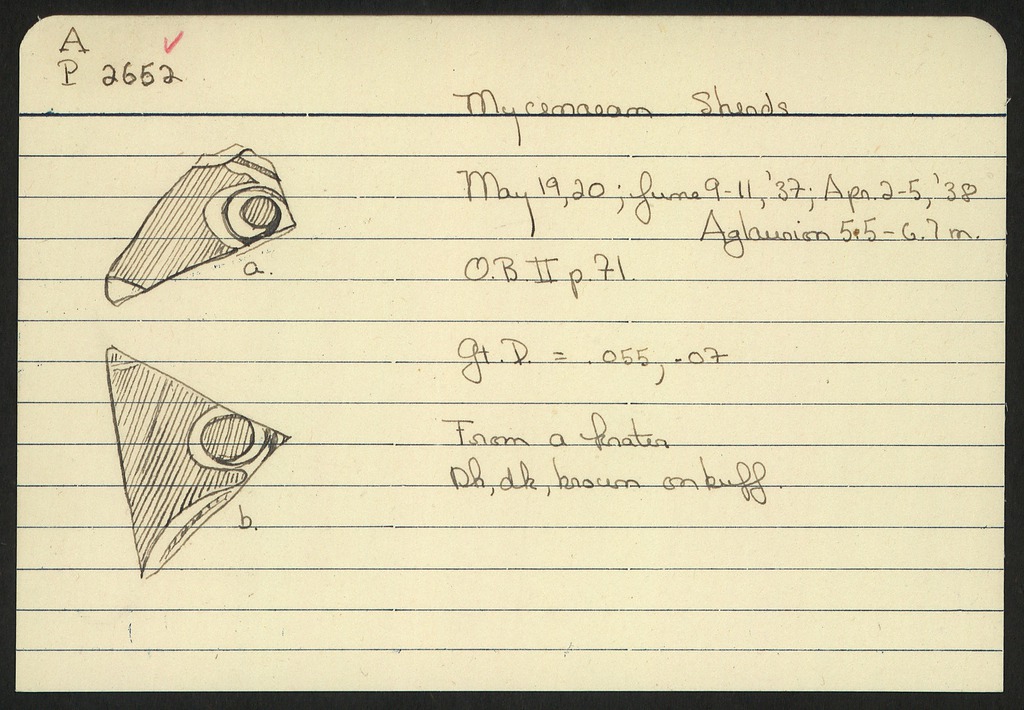 A
P 2652
Mycenaean Sherds
May 19, 20; June 9-11, '37; Apr. 2-5, '38
Aglaurion 5.5-6.7 m.
a.
O.B. II p. 71.
Gt. D. = .055, .07
From a krater
Dk, dk, brown on buff.
b.